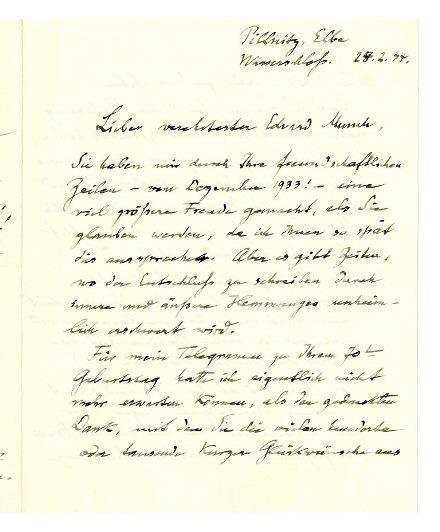 Pillnitz, Elbe
Wasserschloß. 24.2.34.
Lieber verehrtester Edvard Munch,
Sie haben mir durch Ihre freundschaftlichen
Zeilen – vom Dezember 1933! – eine
viel größere Freude gemacht, als Sie
glauben werden, da ich Ihnen so spät
dies ausspreche. Aber es gibt Zeiten,
wo der Entschluß zu schreiben durch
innere und äußere Hemmungen unheim-
lich erschwert wird.
Für mein Telegramm zu Ihrem 70t
Geburtstag hatte ich eigentlich nicht
mehr erwarten können, als den gedruckten
Dank, mit dem Sie die vielen hunderte
oder tausende kurzer Glückwünsche aus